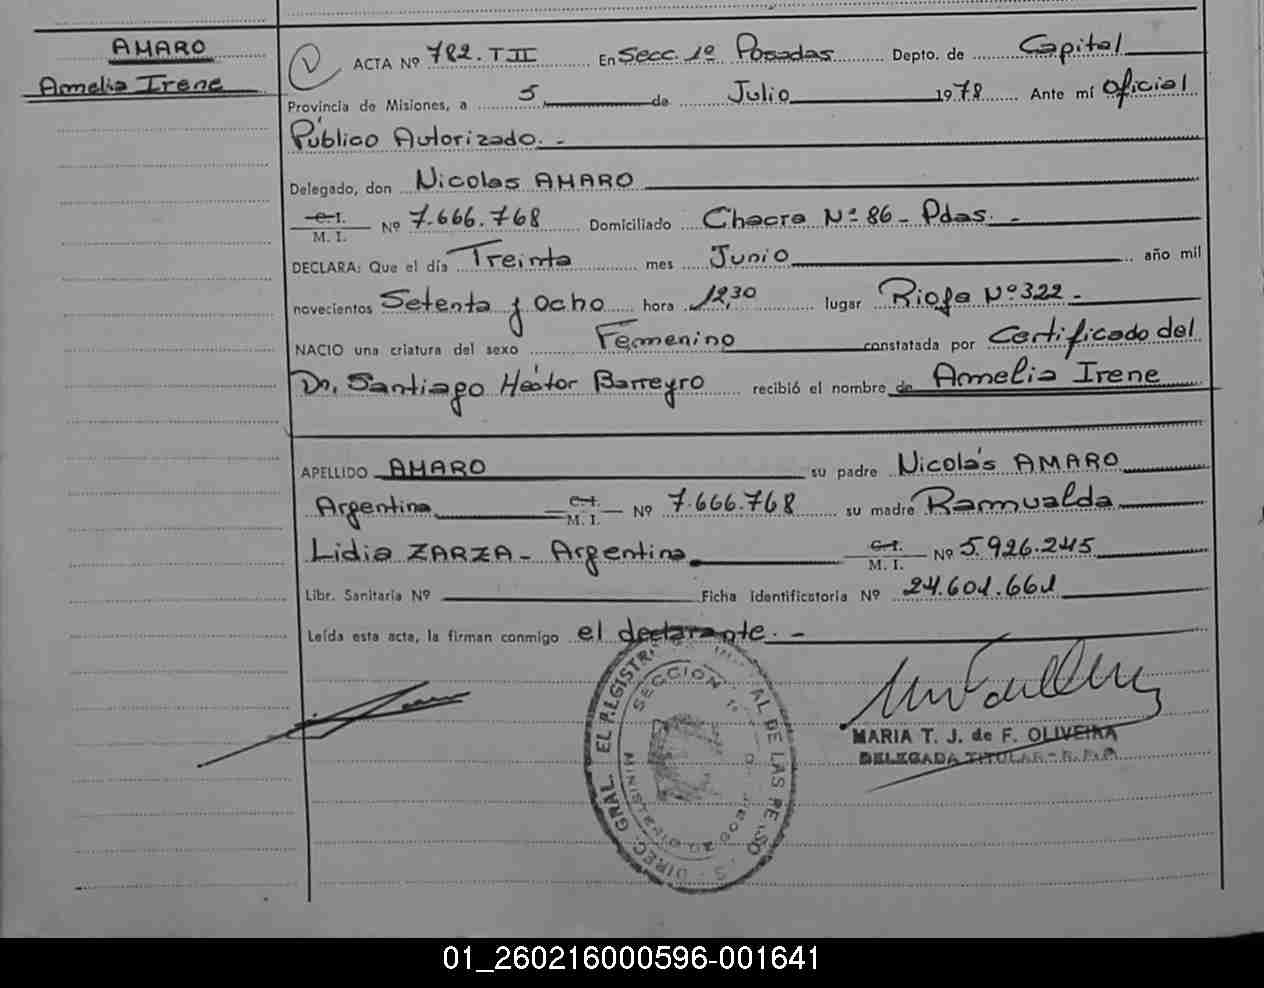 AMARO
Amelia Irene
V
ACTA Nº 782. T II En Secc. 1º Posadas Depto. de Capital
Provincia de Misiones, a 5 de Julio 1978 Ante mí Oficial
Público Autorizado. -
Delegado, don Nicolas AMARO
C.I.
M. I. Nº 7.666.768 Domiciliado Chacra Nº 86 - Pdas. -
DECLARA: Que el día Treinta mes Junio año mil
novecientos Setenta y Ocho hora 12,30 lugar Rioja Nº 322 -
NACIO una criatura del sexo Femenino constatada por Certificado del
Dr. Santiago Héctor Barreyro recibió el nombre de Amelia Irene
APELLIDO AMARO su padre Nicolás AMARO
Argentina C.I. M. I. Nº 7.666.768 su madre Ramualda
Lidia ZARZA - Argentina C.I. M. I. Nº 5.926.245
Libr. Sanitaria Nº Ficha identificatoria Nº 24.601.661
Leída esta acta, la firman conmigo el declarante. -
DIREC. GRAL. EL REGISTR AL DE LAS PE SO S
SECCION 1
MINISTERIO
MARIA T. J. de F. OLIVEIRA
DELEGADA TITULAR - R.P.P.
01_260216000596-001641